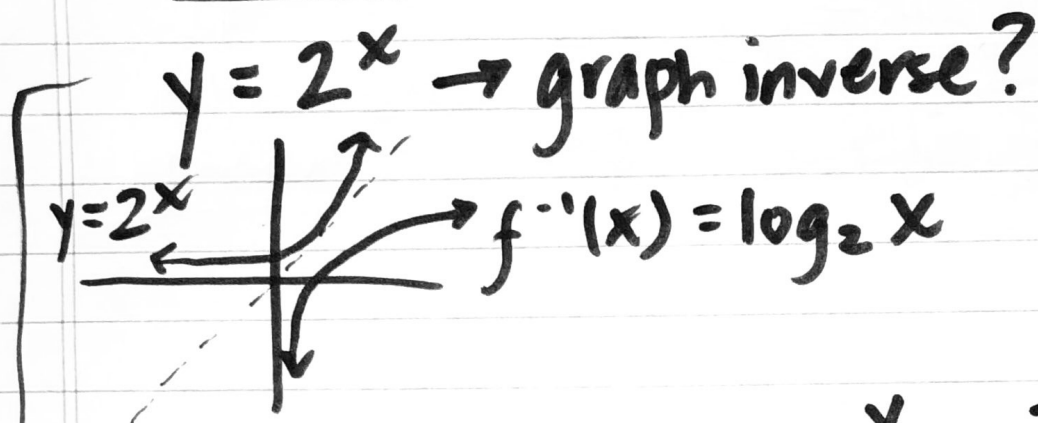 y = 2^x → graph inverse?
y=2^x
f⁻¹(x) = log₂ x